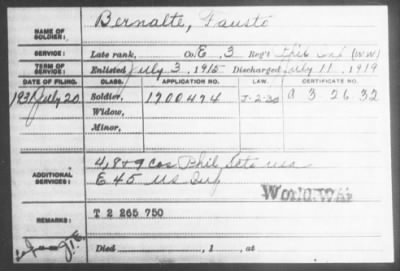 NAME OF SOLDIER: Bernalte, Fausto
SERVICE: Late rank, Co. E, 3 Reg't Phil Inf (WW)
TERM OF SERVICE: Enlisted July 3, 1915 Discharged July 11, 1919
DATE OF FILING. CLASS. APPLICATION NO. LAW. CERTIFICATE NO.
1931 July 20 Soldier, 1700474 J-2-30 a 3 26 32
Widow,
Minor,
ADDITIONAL SERVICES: 4, 8 & 9 Cos Phil Scts USA
E 45 US Inf
World War
REMARKS: T 2 265 750
Died , 1 , at